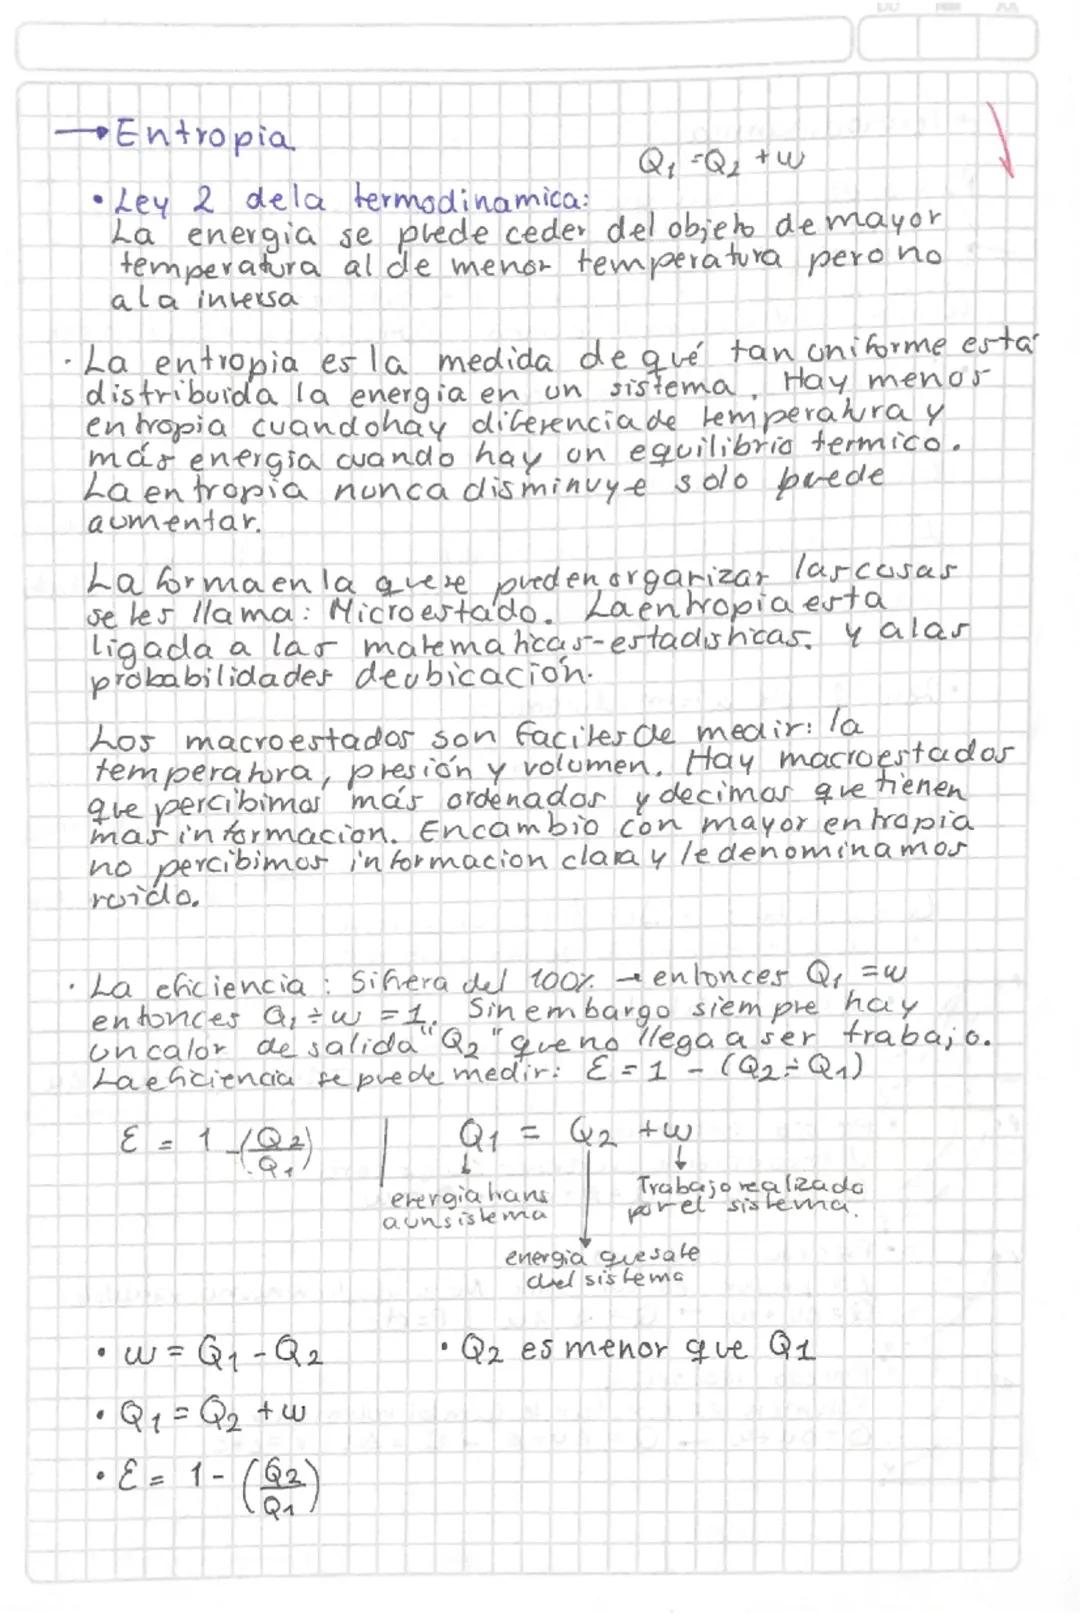 → Entropia
Q₁ = Q₂ + w
• Ley 2 dela termodinamica:
La energia se puede ceder del objeto de mayor
temperatura al de menor temperatura pero no
a la inversa
· La entropia es la medida de qué tan uniforme está
distribuida la energia en un sistema. Hay menos
entropia cuando hay diferencia de temperatura y
más energia cuando hay un equilibrio termico.
La entropia nunca disminuye solo puede
aumentar.
La forma en la que se pueden organizar las cosas
se les llama: Microestado. La entropia esta
ligada a las matematicas-estadisticas. y a las
probabilidades de ubicación.
Los macroestados son faciles de medir: la
temperatura, presión y volumen. Hay macroestados
que percibimos más ordenados y decimos que tienen
mas informacion. En cambio con mayor entropia
no percibimos informacion clara y le denominamos
ruido.
· La eficiencia : Si fuera del 100% → entonces Q₁ = w
entonces Q₁ ÷ w = 1. Sin embargo siempre hay
un calor de salida "Q₂" que no llega a ser trabajo.
La eficiencia se puede medir: Ɛ = 1 - (Q₂ ÷ Q₁)
Ɛ = 1 - (Q₂/Q₁) | Q₁ = Q₂ + w
energia trans
a un sistema
Trabajo realizado
por el sistema.
energia que sale
del sistema
• w = Q₁ - Q₂
• Q₂ es menor que Q₁
• Q₁ = Q₂ + w
• Ɛ = 1 - (Q₂/Q₁)